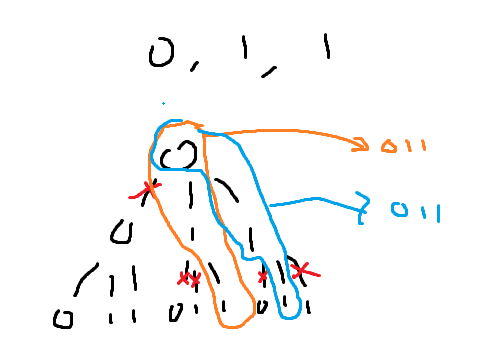 0, 1, 1
0
011
011
0 1 1
0 1 1 0 1 1 0 1 1